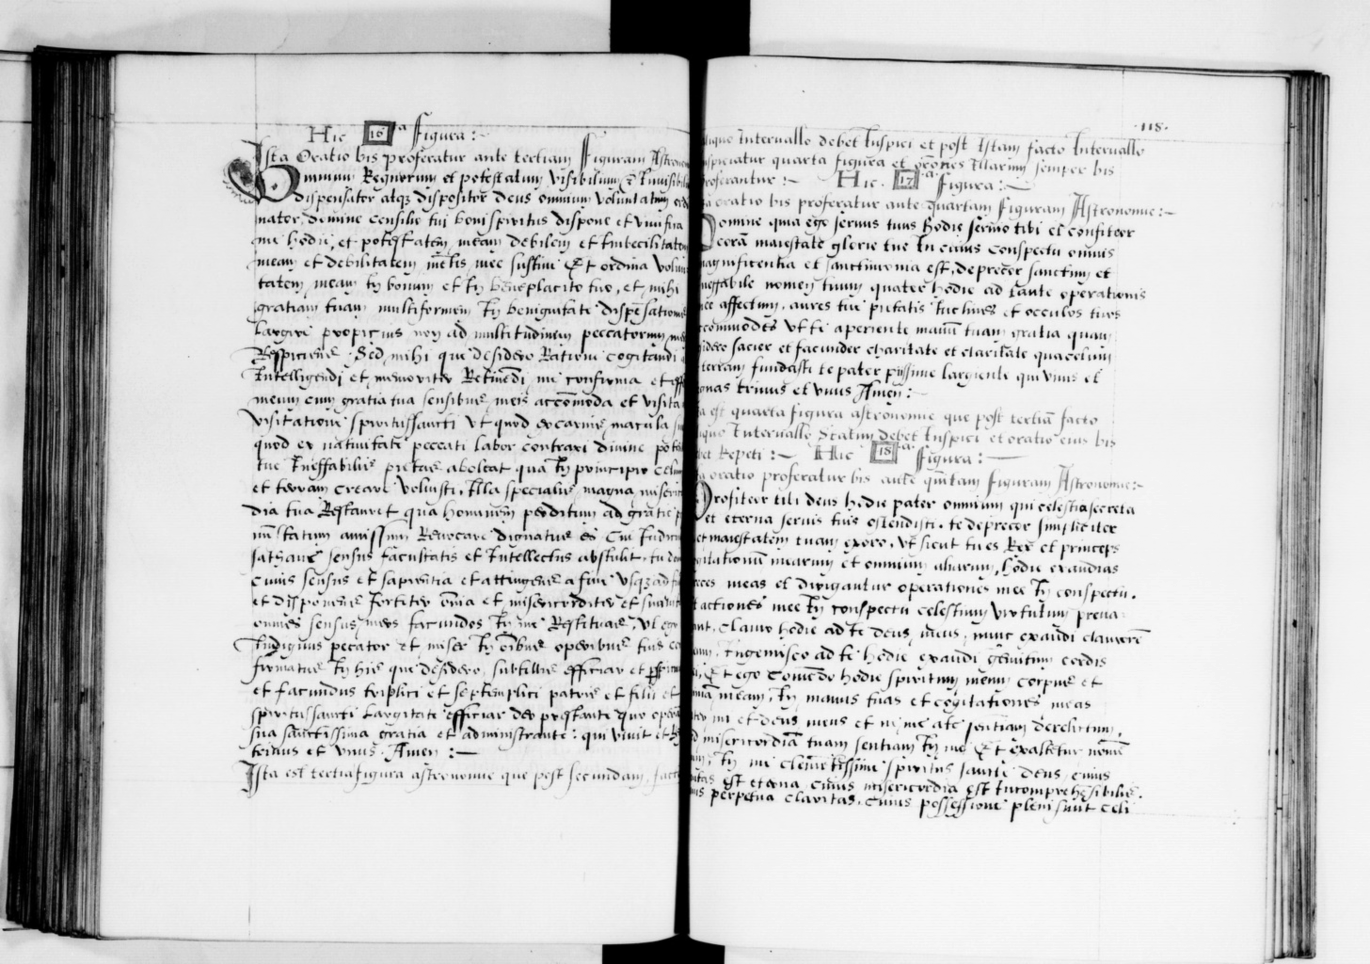 Hic 16ᵃ figura:-
Ista Oratio bis proferatur ante tertiam Figuram Astrono
Omnium Regnorum et potestatum visibilium et Invisibili
dispensator atqz dispositor deus omnium voluntatum ord
nator, domine consilio tui boni spiritus dispone et vivifica
me hodie, et potestatem meam debilem et Imbecilitatem
meam et debilitatem mentis mee et ordina volun
tatem meam in bonum et in beneplacito tuo, et mihi
gratiam tuam multiformem in benignitate dispēsationis
Largire propicius non ad multitudinem peccatorum me
Respiciens. Sed mihi que desidero Rationi cogitandi
Intelligendi et memoriter Retinēdi, me confirma et eff
meum cum gratia tua sensibus meis accōmoda et visita
visitatione spiritussancti vt quod ex carnis macula
quod ex nativitate peccati labor contraxi divine pote
tue Ineffabilis pietas aboleat qua in principio celum
et terram creare voluisti, Illa specialis magna miseric
dia tua Restauret qua hominem perditum ad gratie
statum amissum Revocare dignatus es Cui Iudicium
sathane sensus facultatis et Intellectus abstulit, tu
cuius sensus et sapientia et attingens a fine vsqz ad
et disponens fortiter omnia et misericorditer et suauit
omnes sensus meos facundos in me Restituas, vt ego
Indignus pecator et miser in omibus operibus tuis co
firmatus in his que desidero, subtilis efficiar et
et facundus triplici et septemplici patris et filii et
spiritussancti Largitate efficiar deo prestante quo opera
sua sanctissima gratia et administrante: qui vivit et
trinus et vnus. Amen:-
Ista est tertia figura astronomie que post secundam, facto
118.
aliquo Intervallo debet Inspici et post Istam facto Intervallo
inspiciatur quarta figura et orōnes Illarum semper bis
proferantur:- Hic. 17ᵃ figura:-
oratio bis proferatur ante quartam figuram Astronomie:-
Domine quia ego servus tuus hodie servio tibi et confiteor
coram maiestate glorie tue In cuius conspectu omnis
magnificentia et sanctimonia est, deprecor sanctum et
ineffabile nomen tuum quatee hodie ad tante operationis
mee affectum, aures tue pietatis Inclines et occulos tuos
accommodes vt te aperiente manū tuam gratia quam
desidero sacier et facunder charitate et claritate qua celum
terram fundasti te pater pijssime largiente qui vivis et
regnas trinus et vnus Amen:-
Ista est quarta figura astronomie que post tertiā facto
aliquo Intervallo Statim debet Inspici et oratio eius bis
debet Repeti:- Hic 18ᵃ figura:-
oratio proferatur bis ante quintam figuram Astronomie:-
Profiteor tibi deus hodie pater omnium qui celestia secreta
et eterna servis tuis ostendisti, te deprecor simpliciter
et maiestatem tuam exoro, vt sicut tu es Rex et princeps
cogitationū mearum et omnium aliarum, hodie exaudias
preces meas et dirigantur operationes mee in conspectu.
et actiones mee in conspectu celestium virtutum preva-
ant, clamo hodie ad te deus meus, nunc exaudi clamorē
meum, Ingemisco ad te hodie exaudi gemitum cordis
Et ego Comendo hodie spiritum meum corpus et
animā meam, in manus tuas et cogitationes meas
pater mi et deus meus et ne me a te sentiam derelictum,
sed misericordiā tuam sentiam in me Et exaltetur nomē
tuum in me clementissime spiritus sancte deus, cuius
bonitas est eterna, cuius misericordia est Incomprehēsibilis.
cuius perpetua claritas, cuius possessione pleni sunt celi